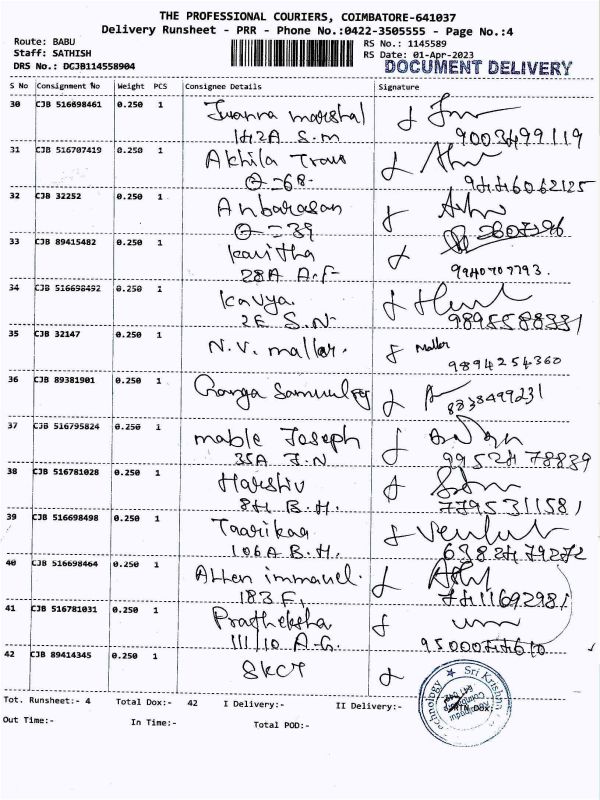 THE PROFESSIONAL COURIERS, COIMBATORE-641037
Delivery Runsheet - PRR - Phone No.:0422-3505555 - Page No.:4
Route: BABU
Staff: SATHISH
DRS No.: DGJB114558904
RS No.: 1145589
RS Date: 01-Apr-2023
DOCUMENT DELIVERY
S No Consignment No Weight PCS Consignee Details Signature
30 CJB 516698461 0.250 1 Juanna marshal
142A S.M 9003499119
31 CJB 516707419 0.250 1 Akhila Trans
9446062125
32 CJB 32252 0.250 1 Anbarasan
33 CJB 89415482 0.250 1 Kavitha
28A A.F 9940707793.
34 CJB 516698492 0.250 1 Kavya.
2E S.N. 9895588331
35 CJB 32147 0.250 1 N.V. mallar. Mallar
9894254360
36 CJB 89381901 0.250 1 Ganga Samuel
8838499231
37 CJB 516795824 0.250 1 mable Joseph
35A J.N 9952478839
38 CJB 516781028 0.250 1 Harshiv
84 B.H. 7795311581
39 CJB 516698498 0.250 1 Taarikaa
106A B.H. 6382479272
40 CJB 516698464 0.250 1 Allen immanuel.
183 F, 7411692981
41 CJB 516781031 0.250 1 Pratheksha
111/10 A.G. 9500044610
42 CJB 89414345 0.250 1 SKCT
Sri Krishna
Tot. Runsheet:- 4 Total Dox:- 42 I Delivery:- II Delivery:-
Out Time:- In Time:- Total POD:-